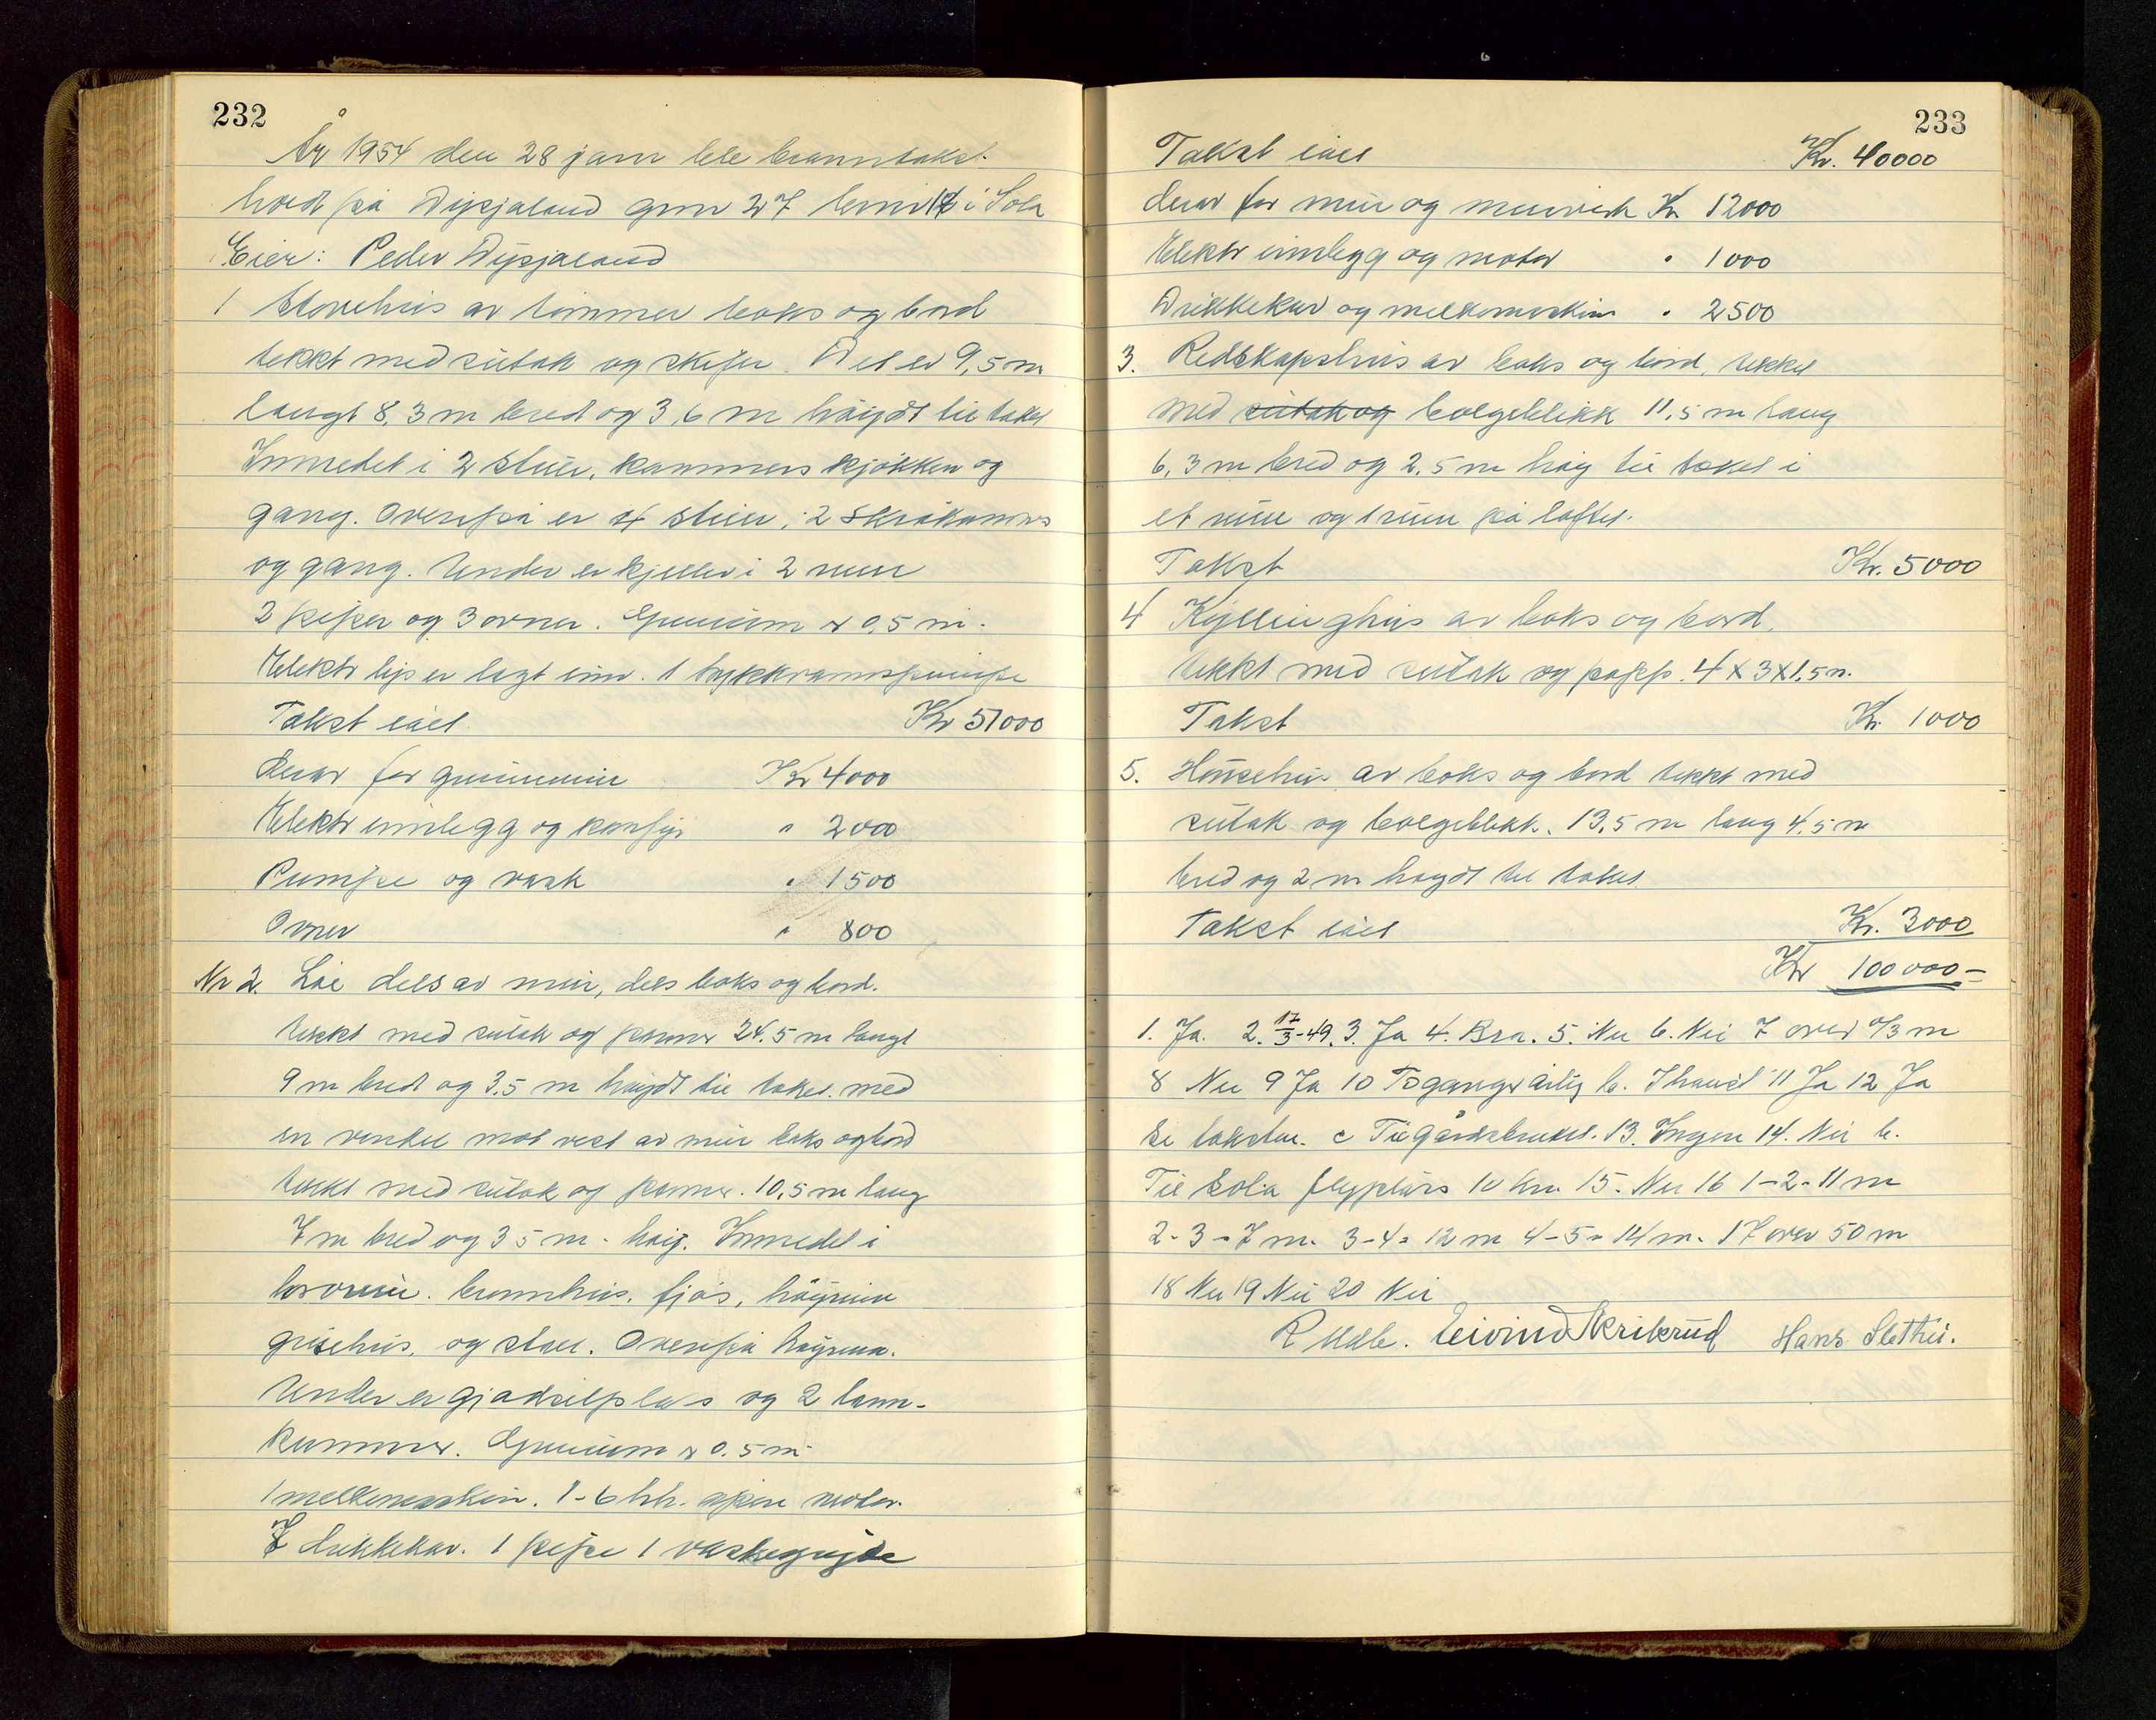 232
År 1954 den 28 jan ble branntakst
holdt på Dysjaland gnr 27 bnr 18 i Sola
Eier: Peder Dysjaland
1 Stovehus av tømmer boks og bord
tekkt med sutak og skifer. Det er 9,5 m
langt 8,3 m bredt og 3,6 m høigdt til taket
Innredet i 2 stuer, kammers kjøkken og
gang. Ovenpå er 4 stuer, 2 skråkammers
og gang. Under er kjeller i 2 rum
2 piper og 3 ovner. Grunnm er 0,5 m.
Elektr lys er lagt inn. 1 trykkvannspumpe
Takst ialt Kr 51000
derav for grunnmur Kr 4000
Elektr innlegg og komfyr " 2000
Pumpe og vask " 1500
Ovner " 800
Nr 2. Løe dels av mur, dels boks og bord.
tekkt med sutak og panner 24,5 m langt
9 m bredt og 3,5 m høigdt til taket. med
en vinkel mot vest av mur boks og bord
tekkt med sutak og panner. 10,5 m lang
7 m bred og 3 5 m. høig. Innredet i
brunnhus, fjøs, høyrum
grisehus, og stall. Ovenpå høyrum.
Under er gjødselplass og 2 land-
kummer. Grunnm er 0.5 m
1 melkemaskin. 1-6 hk. åpen motor.
7 drikkekar. 1 pipe 1 vaskegryde
233
Takst ialt Kr. 40000
derav for mur og murverk Kr 12000
Elektr innlegg og motor " 1000
Drikkekar og melkemaskin " 2500
3. Redskapshus av boks og bord, tekket
med sutak og bølgeblikk 11,5 m lang
6,3 m bred og 2,5 m høig til taket i
et rum og 1 rum på loftet.
Takst Kr. 5000
4 Kyllinghus av boks og bord.
tekkt med sutak og papp. 4 x 3 x 1,5 m.
Takst Kr. 1000
5. Hønsehus av boks og bord tekkt med
sutak og bølgeblikk. 13,5 m lang 4,5 m
bred og 2 m høgdt til taket
Takst ialt Kr. 3000
Kr 100000-
1. Ja. 2. 17/3-49. 3. Ja 4. Bra. 5. Nei 6. Nei 7 over 0/3 m
8 Nei 9 Ja 10 To ganger årlig b. Thansil 11 Ja 12 Ja
Se taksten. c Til gårdsbruket. 13. Ingen 14. Nei b.
Til Sola flyplass 10 km 15. Nei 16 1-2=11 m
2-3=7 m. 3-4=12 m 4-5=14 m. 17 over 50 m
18 Nei 19 Nei 20 Nei
R Malle. Eivind Skribrud Hans Slettli.